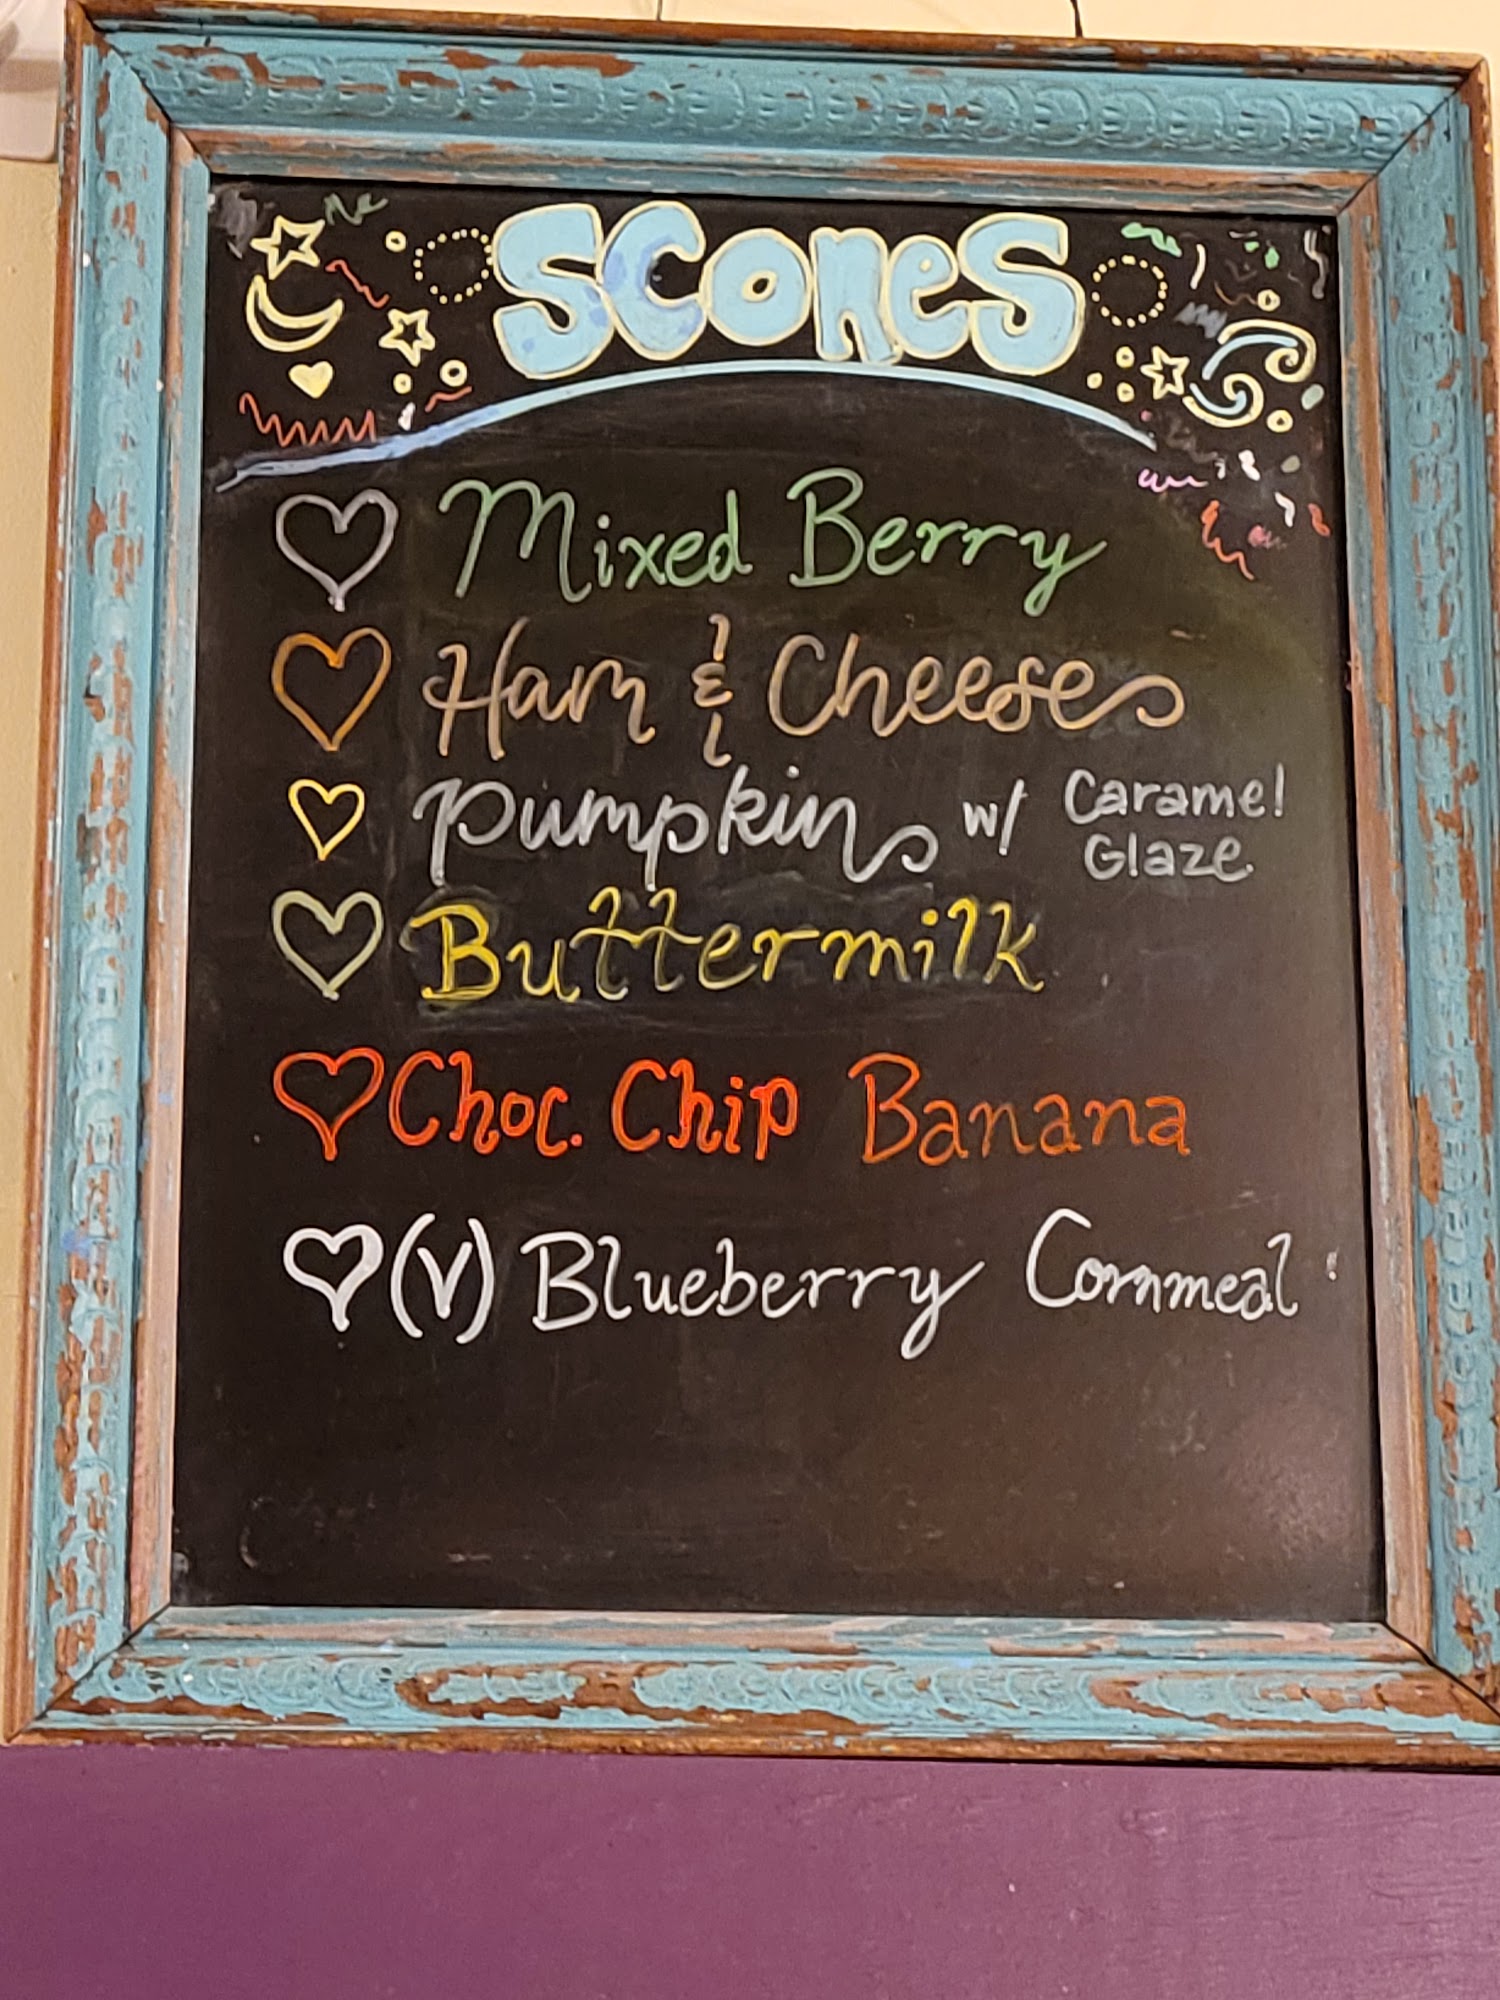 Scones
Mixed Berry
Ham & Cheese
Pumpkin w/ Caramel
Glaze
Buttermilk
Choc. Chip Banana
(V) Blueberry Cornmeal